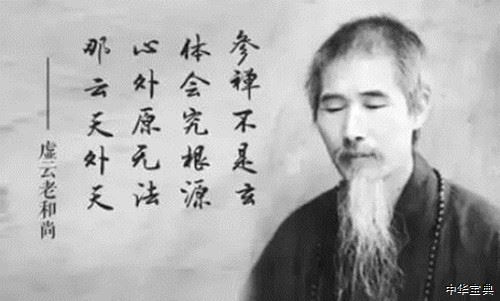 参禅不是玄
体会究根源
心外原无法
那云天外天
——虚云老和尚
中华宝典